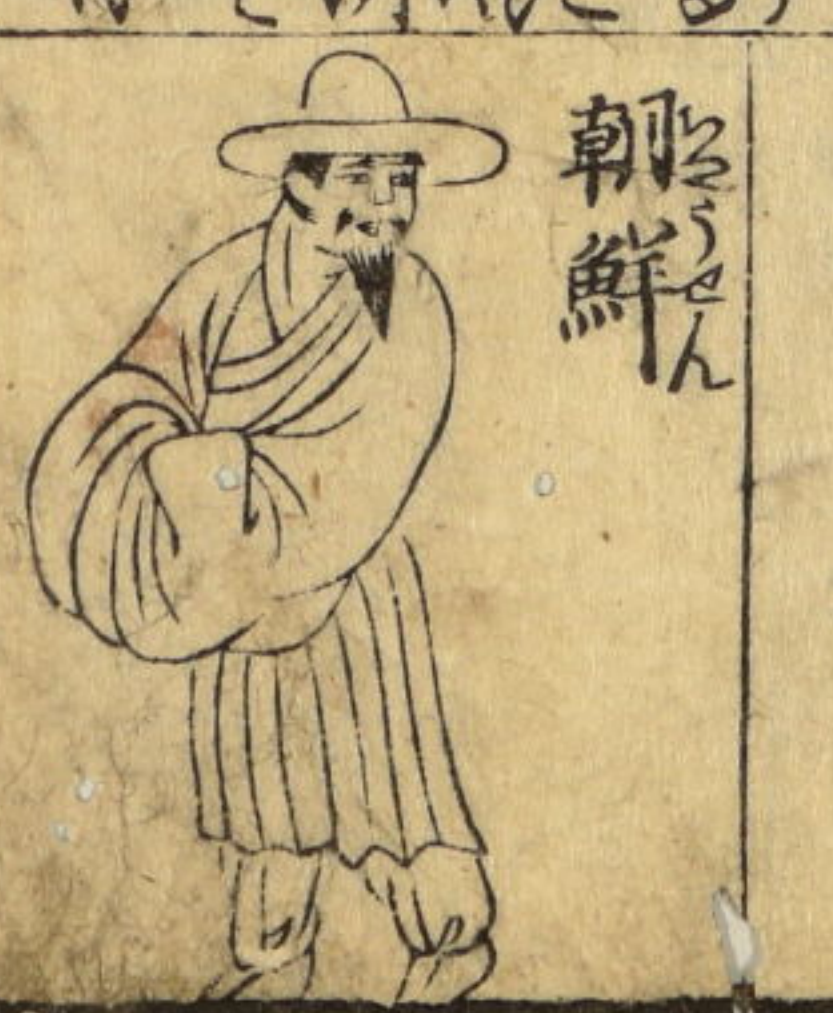 朝鮮
てうせん